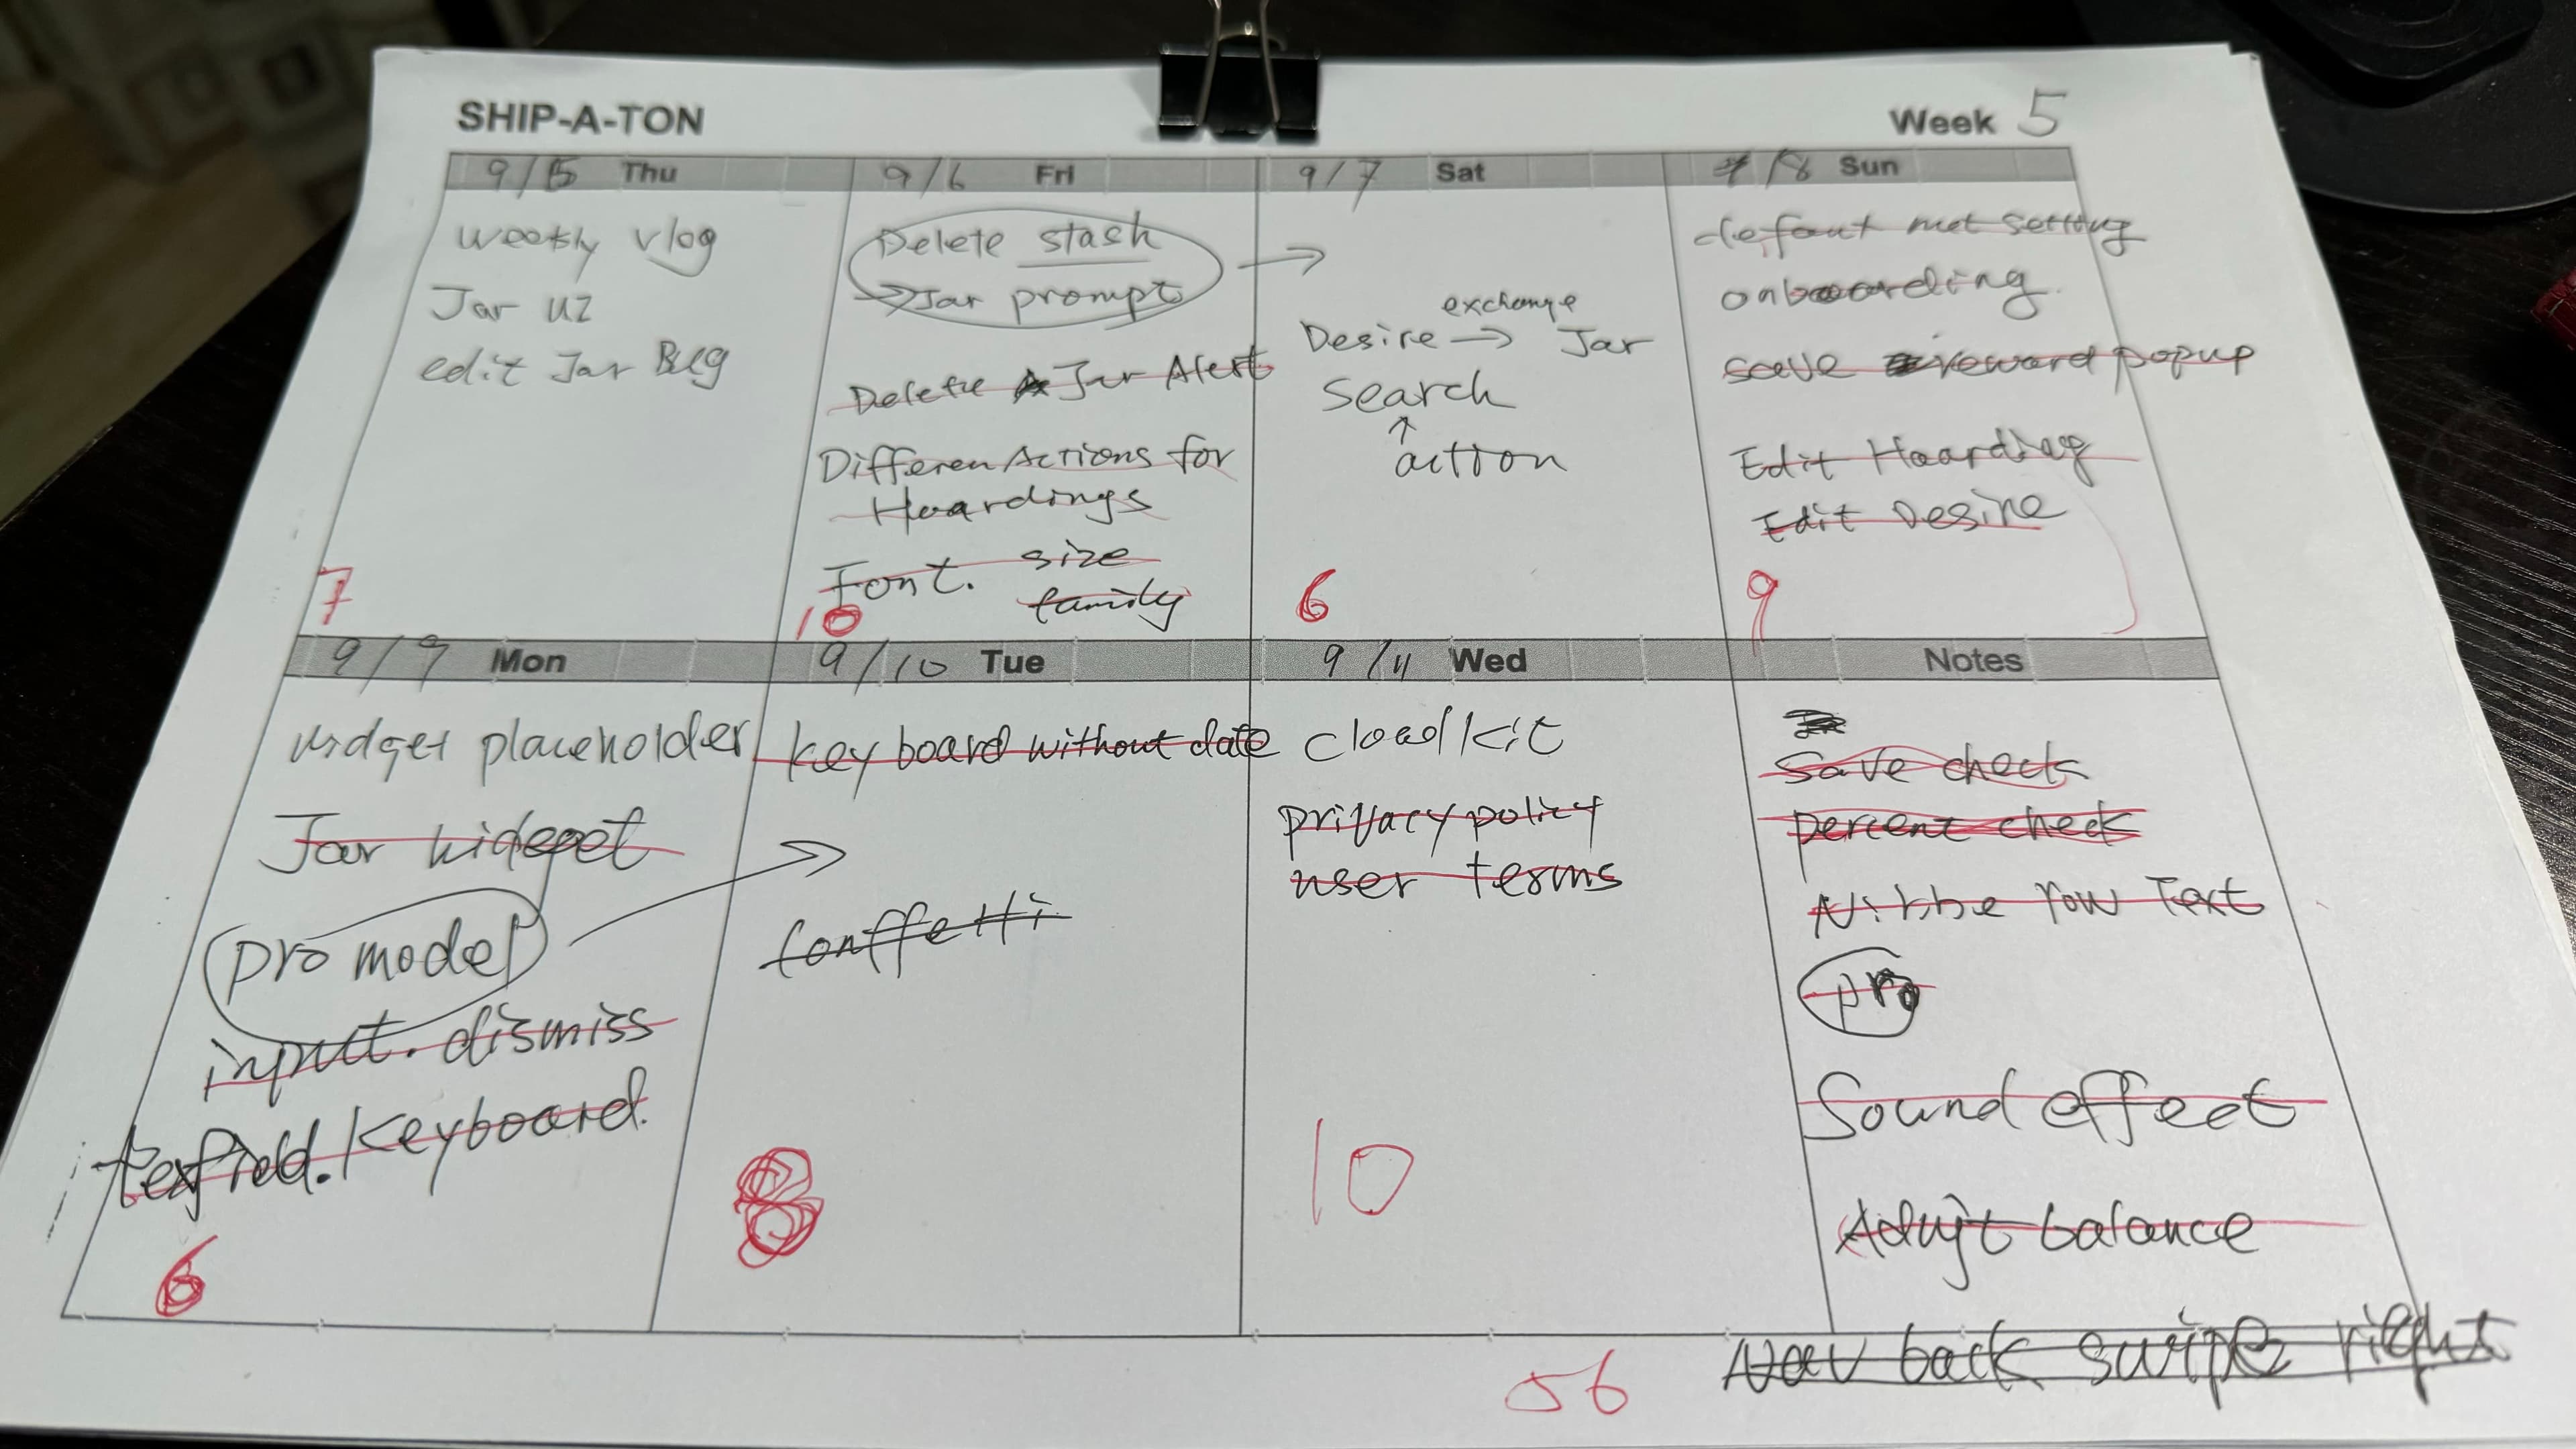 SHIP-A-TON
Week 5
9/5 Thu
weekly vlog
Jar UI
edit Jar Bug
7
9/6 Fri
Delete stash
→Jar prompt
Delete Jar Alert
Differen Actions for
Hoardings
Font. size
family
10
9/7 Sat
exchange
Desire → Jar
Search
↑
action
6
9/8 Sun
defaut met setting
onboarding.
save reward popup
Edit Hoarding
Edit Desire
9
9/9 Mon
widget placeholder
Jar widget
pro model
input. dismiss
texfield. Keyboard.
6
9/10 Tue
key board without date
Conffetti
8
9/11 Wed
cloud kit
privacy policy
user terms
10
Notes
Save check
percent check
row Text
pro
Sound effect
Adujt balance
Nav back swipe right
56